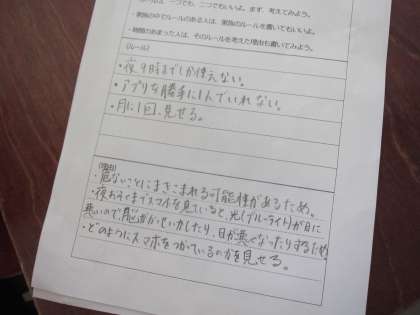 一つでも、二つでもいいよ。まず、考えてみよう。
・家族の中でルールのある人は、家族のルールを書いてもいいよ。
・時間のあまった人は、そのルールを考えた理由も書いてみよう。
(ルール)
・夜9時までしか使えない。
・アプリを勝手に1人でいれない。
・月に1回、見せる。
(理由)
・危ないことにまきこまれる可能種があるため。
・夜おそくまでスマホを見ていると、光(ブルーライト)が目に
悪いので、脳が
したり、目が悪くなったりするため
・どのようにスマホをつかているのかを見せる。